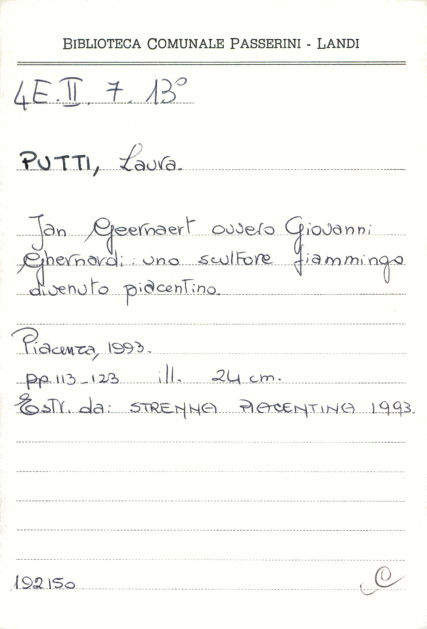 BIBLIOTECA COMUNALE PASSERINI - LANDI
4E.II.7.13°
PUTTI, Laura.
Jan Geernaert ovvero Giovanni
Ghernardi: uno scultore fiammingo
divenuto piacentino.
Piacenza, 1993.
pp. 113-123 ill. 24 cm.
Estr. da: STRENNA PIACENTINA 1993.
192150